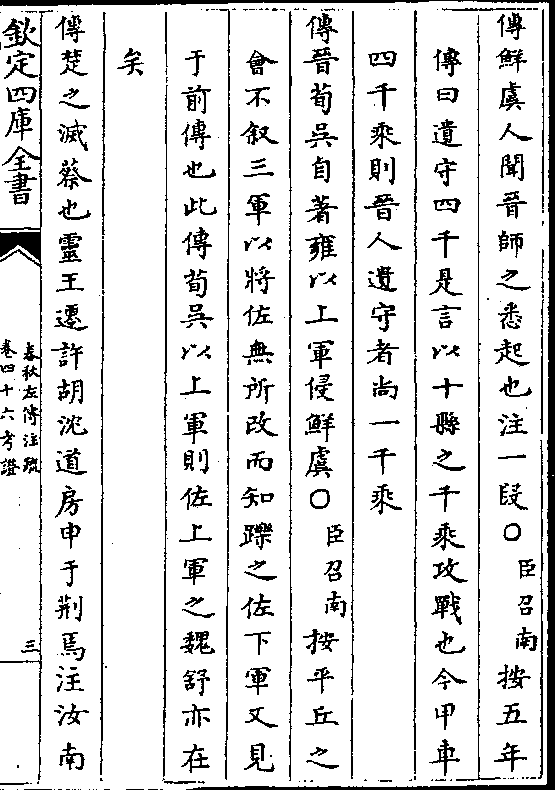 傳鮮虞人聞晉師之悉起也注一段○臣召南按五年
傳曰遺守四千是言以十縣之千乘攻戰也今甲車
四千乘則晉人遺守者尚一千乘
傳晉荀吳自著雍以上軍侵鮮虞○臣召南按平丘之
會不叙三軍以將佐無所改而知躒之佐下軍又見
于前傳也此傳荀吳以上軍則佐上軍之魏舒亦在
矣
傳楚之滅蔡也靈王遷許胡沈道房申于荆焉注汝南
欽定四庫全書
春秋左傳注疏
卷四十六考證
三